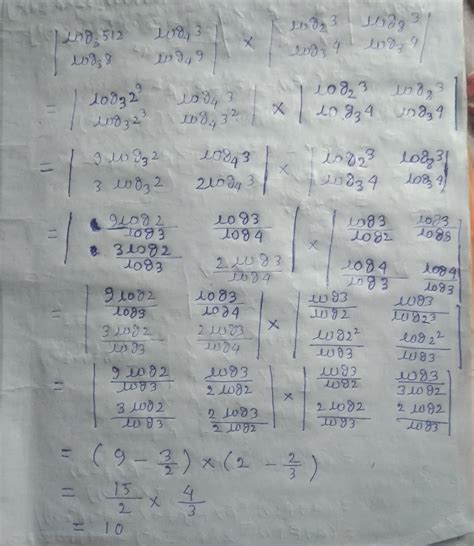 | log₃512 log₄3 | × | log₂3 log₈3 |
| log₃8 log₄9 | | log₃4 log₃4 |
= | log₃2⁹ log₄3 | × | log₂3 log₂3 |
| log₃2³ log₄3² | | log₃4 log₃4 |
= | 9 log₃2 log₄3 | × | log₂3 log₈3 |
| 3 log₃2 2log₄3 | | log₃4 log₃4 |
= | 9log2/log3 log3/log4 | × | log3/log2 log3/log8 |
| 3log2/log3 2log3/log4 | | log4/log3 log4/log3 |
= | 9log2/log3 log3/log4 | × | log3/log2 log3/log2³ |
| 3log2/log3 2log3/log4 | | log2²/log3 log2²/log3 |
= | 9log2/log3 log3/2log2 | × | log3/log2 log3/3log2 |
| 3log2/log3 2log3/2log2 | | 2log2/log3 2log2/log3 |
= (9 - 3/2) × (2 - 2/3)
= 15/2 × 4/3
= 10